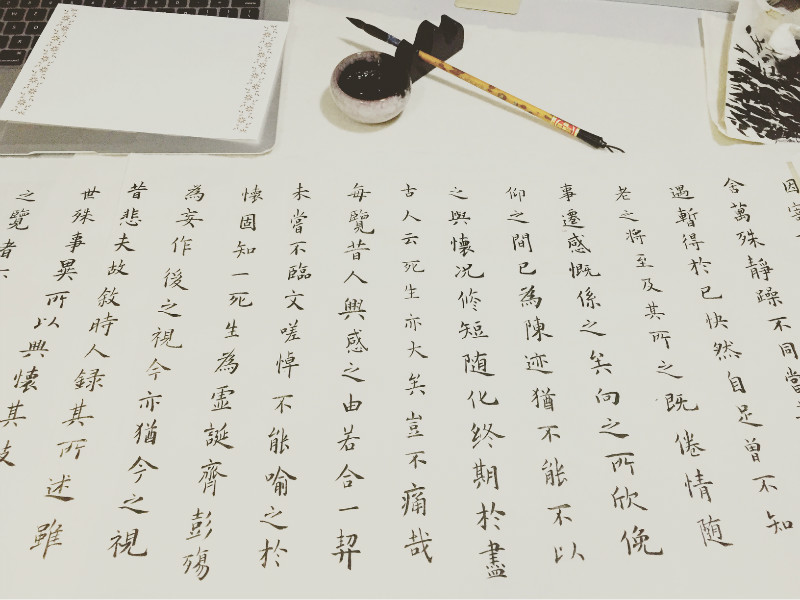 因
舍萬殊靜躁不同當
遇暫得於已快然自足曾不知
老之將至及其所之既倦情随
事遷感慨係之矣向之所欣俛
仰之間已為陳迹猶不能不以
之興懷况修短随化終期於盡
古人云死生亦大矣豈不痛哉
每覽昔人興感之由若合一契
未嘗不臨文嗟悼不能喻之於
懷固知一死生為虛誕齊彭殤
為妄作後之視今亦猶今之視
昔悲夫故敘時人録其所述雖
世殊事異所以興懷其
之覽者